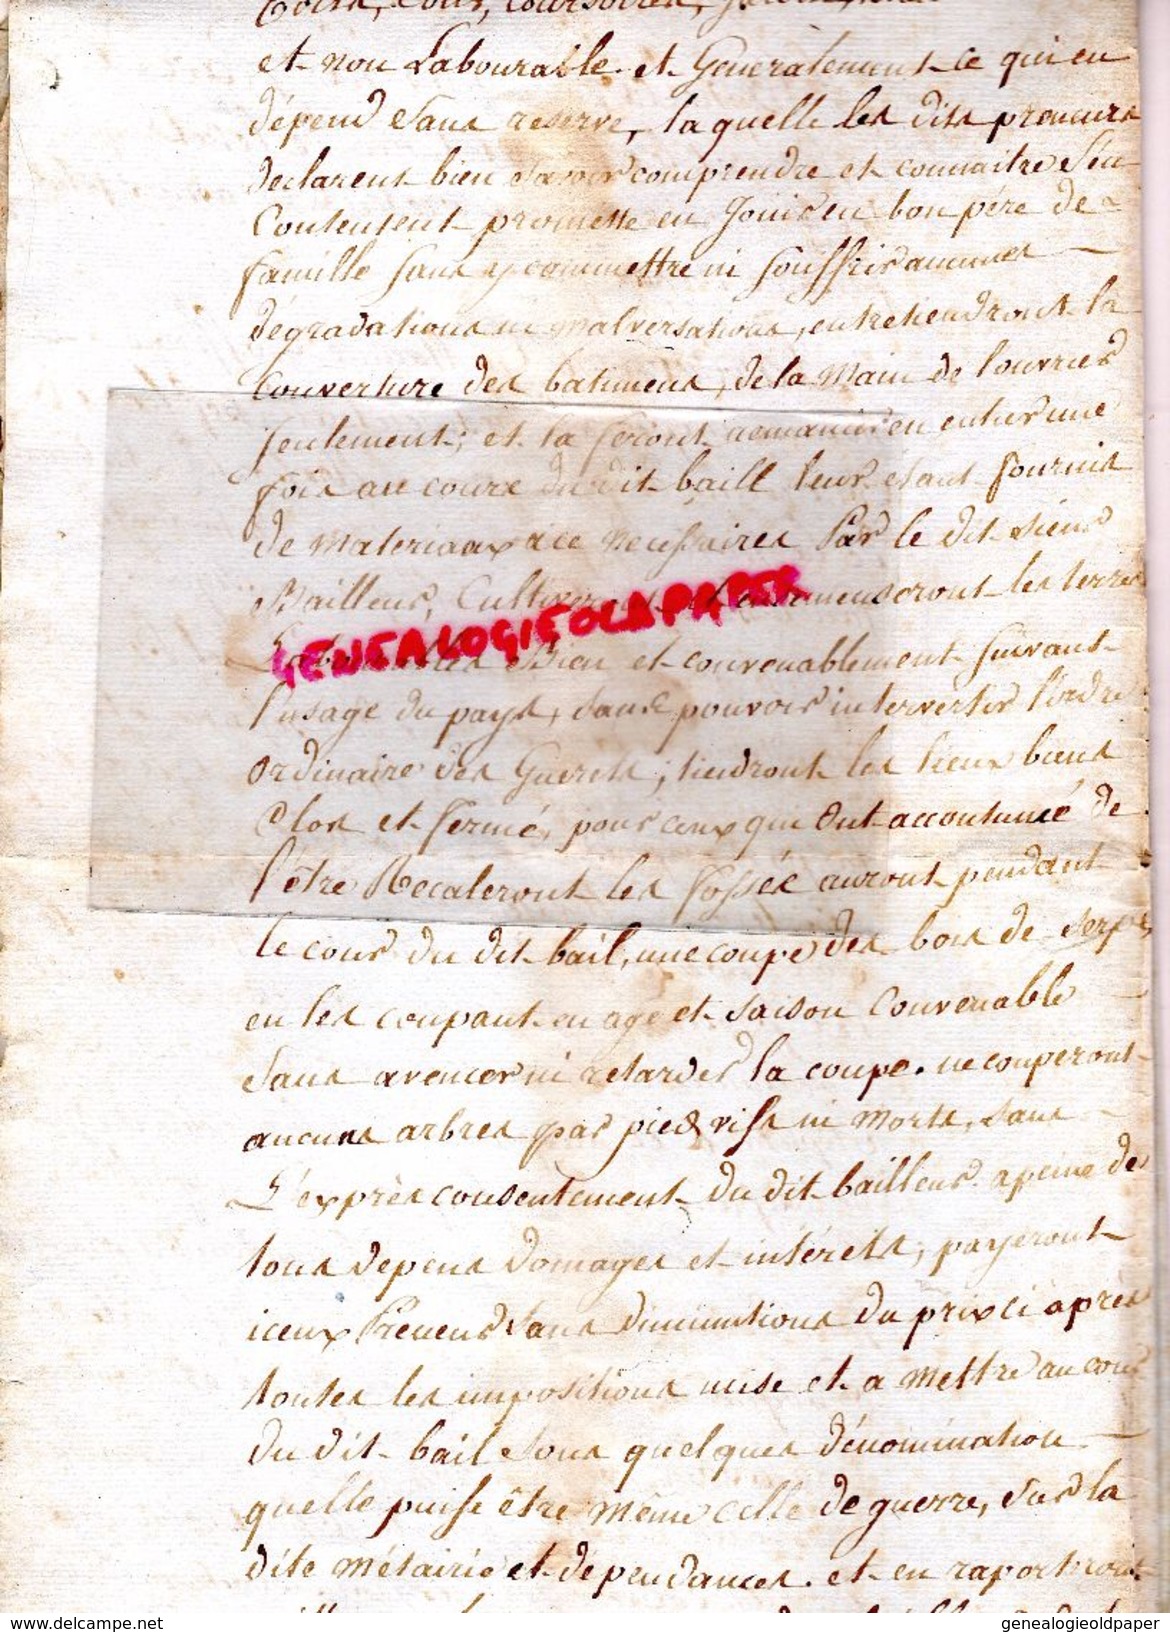 Toits, Cour,
et non Labourable. et Generalement ce qui en
dépend sans reserve, la quelle les dits preneurs
declarent bien savoir comprendre et connaitre s'en
Contentent promette en Jouir en bon pére de
famille sans y commettre ni souffrir aucunes
dégradations ni malversations, entretiendront la
Couverture des batimens, de la main de louvrier
seulement; et la feront remanier en entier une
fois au cours du dit baill leur etant fournis
de materiaux a ce necessaires Par le dit sieur
Bailleur, Cultiveront et ensemenseront les terres
GENEALOGIEOLDPAPER
Labourables Bien et convenablement suivant
l'usage du pays, sans pouvoir intervertir l'ordre
ordinaire des Guerets; tiendront les lieux biens
Clos et fermé, pour ceux qui ont accoutumé de
l'être Recaleront les fossés auront pendant
le cour du dit bail, une coupe des bois de serpe,
en les coupant en age et saison Convenable
sans avencer ni retarder la coupe. ne couperont
aucuns arbres par pied vifs ni morts, sans
L'exprès consentement du dit bailleur a peine de
tous depens domages et intérets; payeront
iceux Preneurs sans diminutions du prix ci après
toutes les impositions mise et a mettre au cour
du dit bail sous quelques dénomination
quelle puisse être même celle de guerre, sur la
dite métairie et dépendances. et en raporteront
www.delcampe.net
genealogieoldpaper